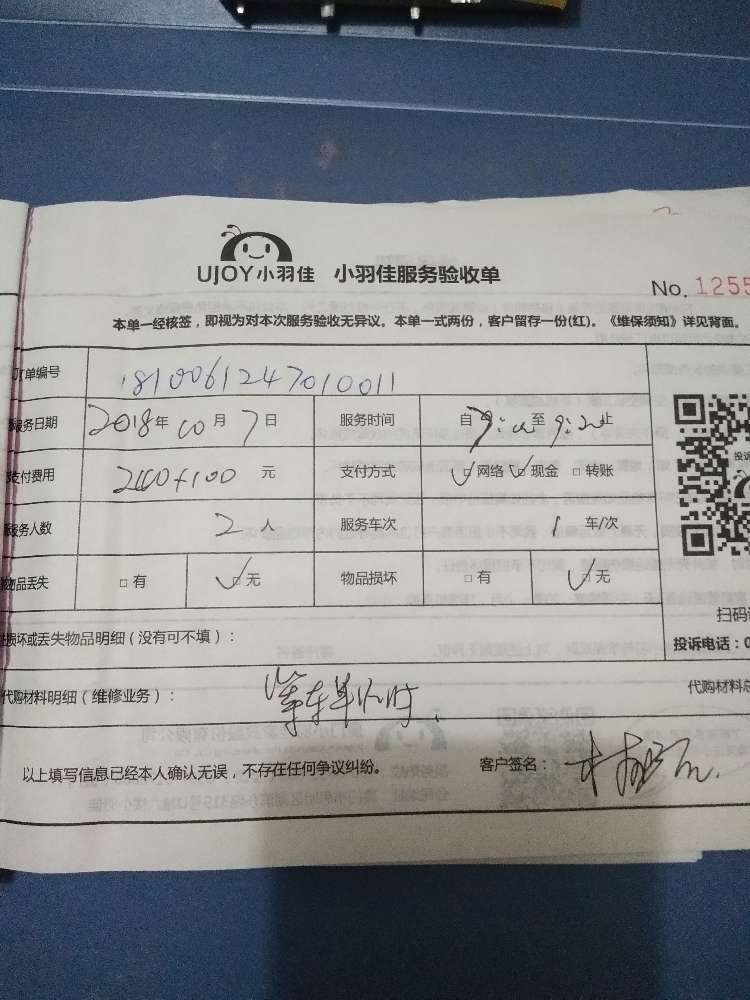 UJOY小羽佳 小羽佳服务验收单
No. 1255
本单一经核签，即视为对本次服务验收无异议。本单一式两份，客户留存一份(红)。《维保须知》详见背面。
订单编号 1810061247010011
服务日期 2018年10月7日 服务时间 自 至 9:20止
支付费用 2100+100 元 支付方式 ☑网络 ☑现金 □转账
服务人数 2人 服务车次 1 车/次
物品丢失 □有 ☑无 物品损坏 □有 ☑无
损坏或丢失物品明细（没有可不填）：
扫码
投诉电话：0
代购材料明细（维修业务）： 代购材料总
以上填写信息已经本人确认无误，不存在任何争议纠纷。 客户签名：